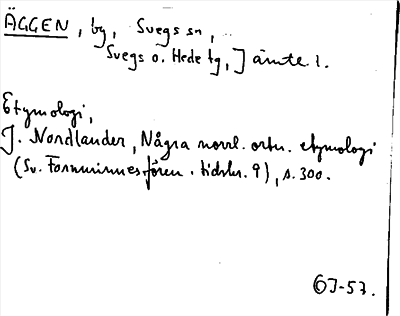 ÄGGEN, by, Svegs sn,
Svegs o. Hede tg, Jämtl.
Etymologi,
J. Nordlander, Några norrl. ortn. etymologi
(Sv. Fornminnesfören. tidskr. 9), s. 300.
ÖJ-57.